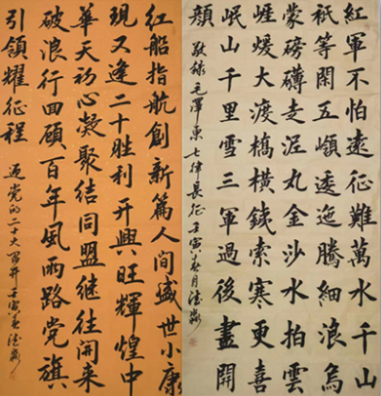 紅軍不怕遠征難萬水千山
祇等閑五嶺逶迤騰細浪烏
蒙磅礴走泥丸金沙水拍雲
崖暖大渡橋橫鐵索寒更喜
岷山千里雪三軍過後盡開
顏
敬錄毛澤東七律長征壬寅春月德
紅船指航創新篇人間盛世小康
現又逢二十勝利開興旺輝煌中
華天初心凝聚結同盟繼往開來
破浪行回顧百年風雨路党旗
引領耀征程
迎党的二十大召開壬寅春德